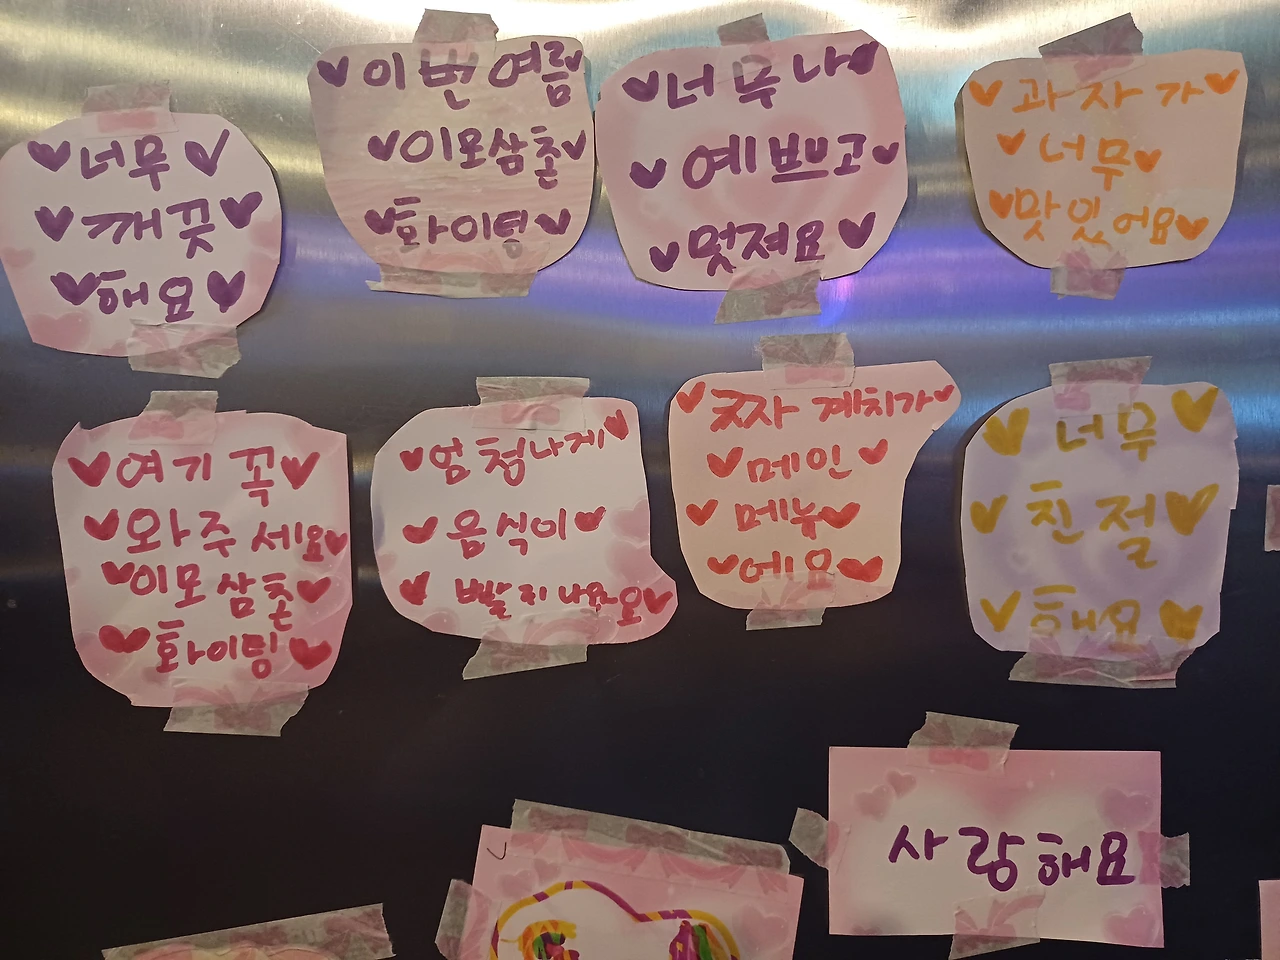 너무
깨끗
해요
이번 여름
이모삼촌
화이팅
너무 나
예쁘고
멋져요
과자가
너무
맛있어요
여기 꼭
와주세요
이모삼촌
화이팅
엄청나게
음식이
빨리 나와요
자 계치가
메인
메뉴
에요
너무
친절
해요
사랑해요